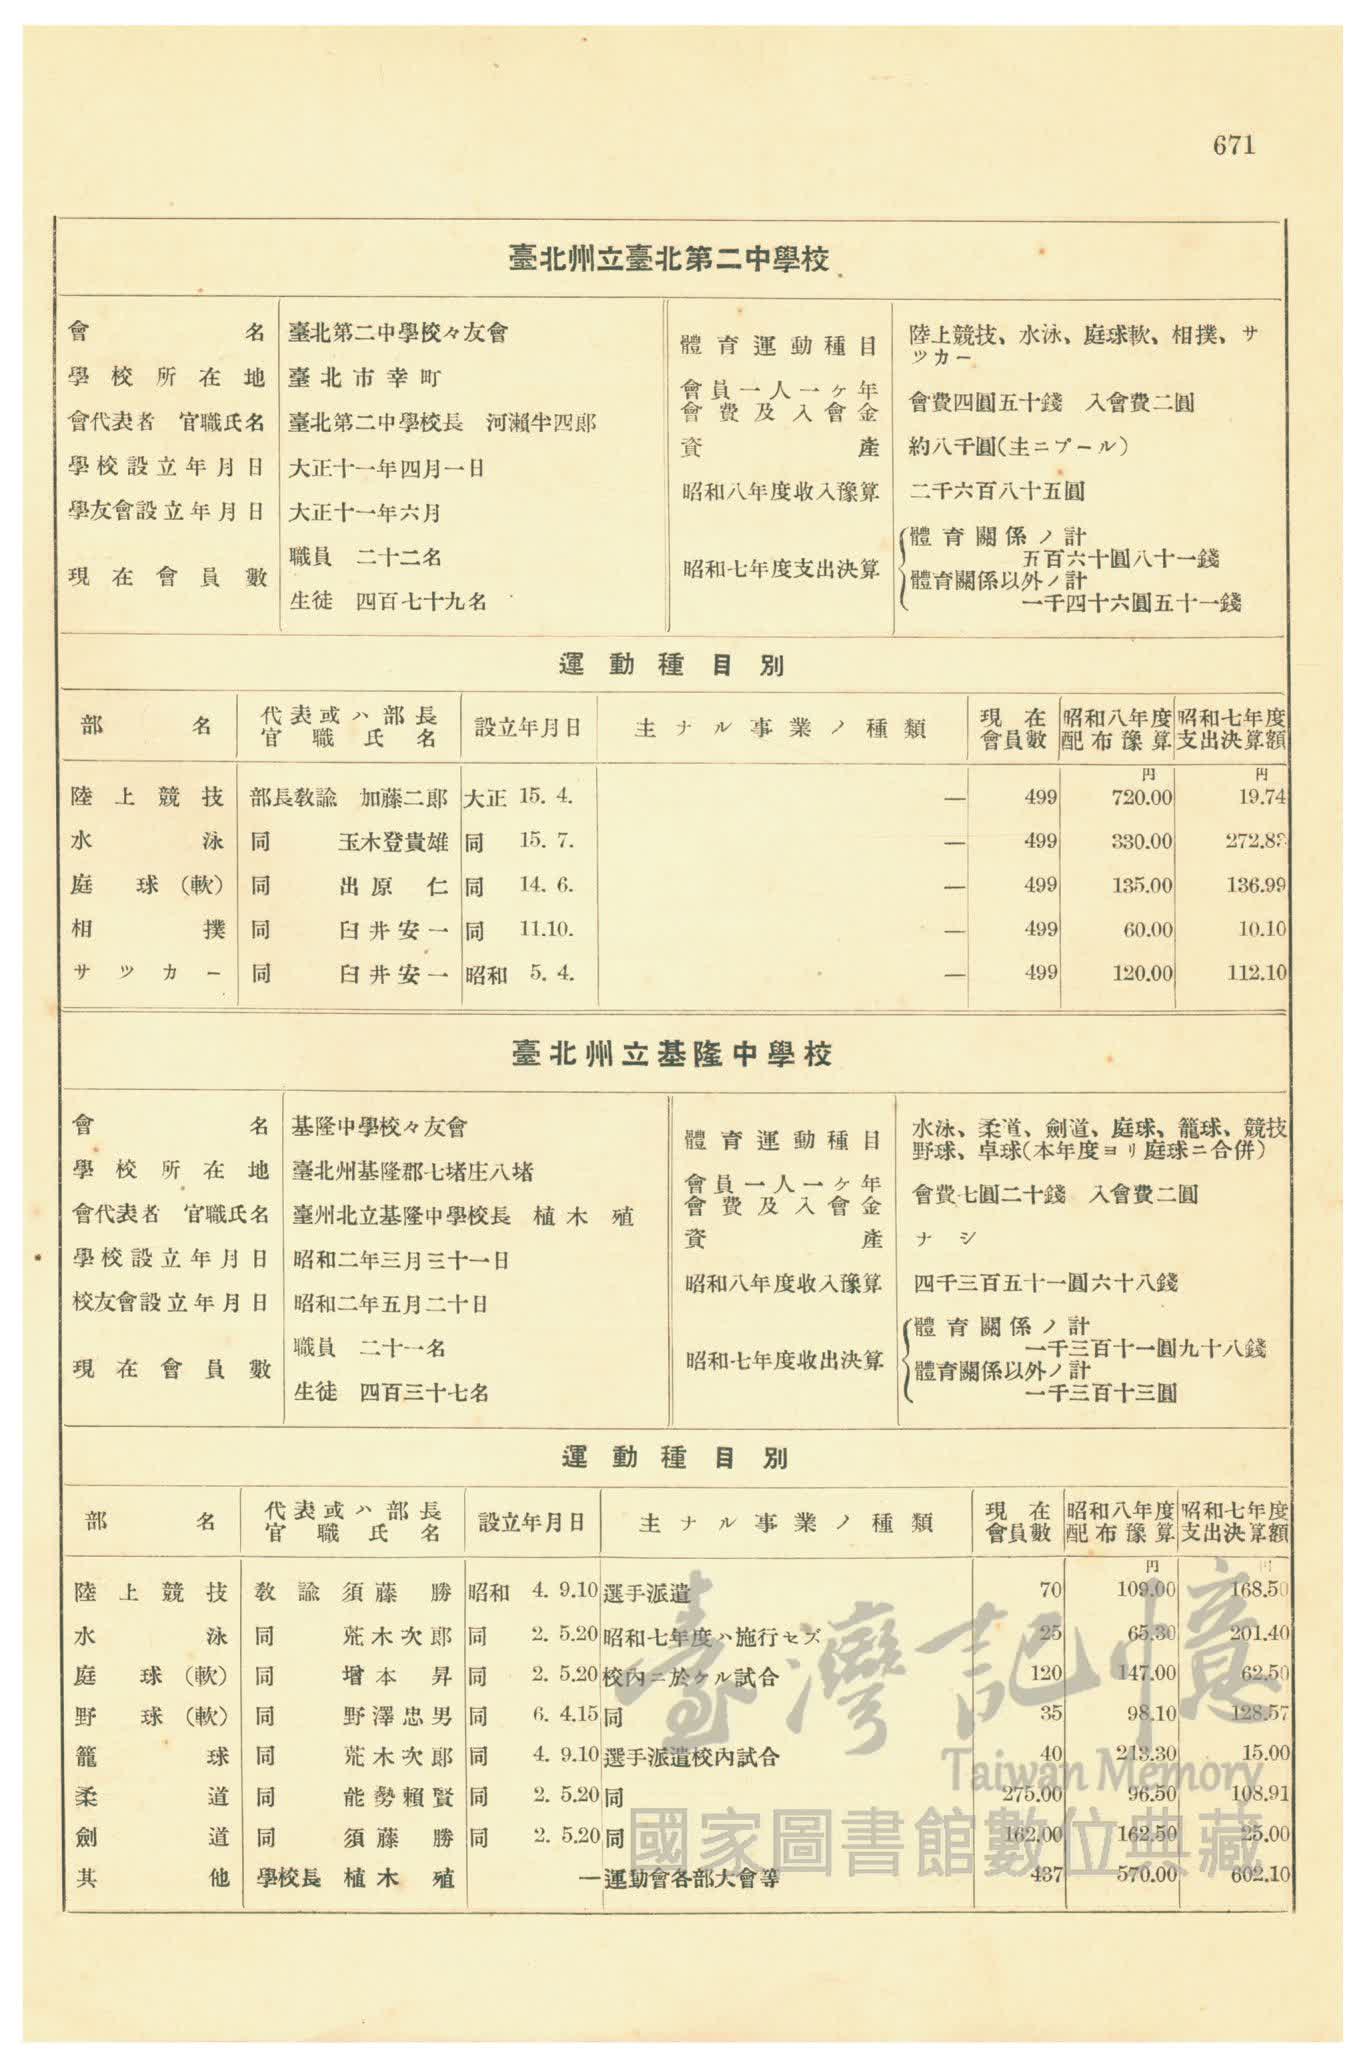 671
臺北州立臺北第二中學校
會名 臺北第二中學校々友會
學校所在地 臺北市幸町
會代表者 官職氏名 臺北第二中學校長 河瀨半四郎
學校設立年月日 大正十一年四月一日
學友會設立年月日 大正十一年六月
現在會員數 職員 二十二名
生徒 四百七十九名
體育運動種目 陸上競技、水泳、庭球軟、相撲、サ
ツカー
會員一人一ヶ年
會費及入會金 會費四圓五十錢 入會費二圓
資產 約八千圓(主ニプール)
昭和八年度收入豫算 二千六百八十五圓
昭和七年度支出決算 體育關係ノ計
五百六十圓八十一錢
體育關係以外ノ計
一千四十六圓五十一錢
運動種目別
部名 代表或ハ部長官職氏名 設立年月日 主ナル事業ノ種類 現在會員數 昭和八年度配布豫算 昭和七年度支出決算額
円 円
陸上競技 部長教諭 加藤二郎 大正 15. 4. — 499 720.00 19.74
水泳 同 玉木登貴雄 同 15. 7. — 499 330.00
庭球(軟) 同 出原仁 同 14. 6. — 499 135.00 136.99
相撲 同 臼井安一 同 11.10. — 499 60.00 10.10
サツカー 同 臼井安一 昭和 5. 4. — 499 120.00 112.10
臺北州立基隆中學校
會名 基隆中學校々友會
學校所在地 臺北州基隆郡七堵庄八堵
會代表者 官職氏名 臺州北立基隆中學校長 植木 殖
學校設立年月日 昭和二年三月三十一日
校友會設立年月日 昭和二年五月二十日
現在會員數 職員 二十一名
生徒 四百三十七名
體育運動種目 水泳、柔道、劍道、庭球、籠球、競技
野球、卓球(本年度ヨリ庭球ニ合併)
會員一人一ヶ年
會費及入會金 會費七圓二十錢 入會費二圓
資產 ナシ
昭和八年度收入豫算 四千三百五十一圓六十八錢
昭和七年度收出決算 體育關係ノ計
一千三百十一圓九十八錢
體育關係以外ノ計
一千三百十三圓
運動種目別
部名 代表或ハ部長官職氏名 設立年月日 主ナル事業ノ種類 現在會員數 昭和八年度配布豫算 昭和七年度支出決算額
円 円
陸上競技 教諭 須藤勝 昭和 4. 9.10 選手派遣 70 109.00 168.50
水泳 同 荒木次郎 同 2. 5.20 昭和七年度ハ施行セズ 25 65.30 201.40
庭球(軟) 同 增本昇 同 2. 5.20 校內ニ於ケル試合 120 147.00 62.50
野球(軟) 同 野澤忠男 同 6. 4.15 同 35 98.10 128.57
籠球 同 荒木次郎 同 4. 9.10 選手派遣校內試合 40 213.30 15.00
柔道 同 能勢賴賢 同 2. 5.20 同 275.00 96.50 108.91
劍道 同 須藤勝 同 2. 5.20 同 162.00 162.50 25.00
其他 學校長 植木殖 — 運動會各部大會等 437 570.00 602.10
臺灣記憶
Taiwan Memory
國家圖書館數位典藏